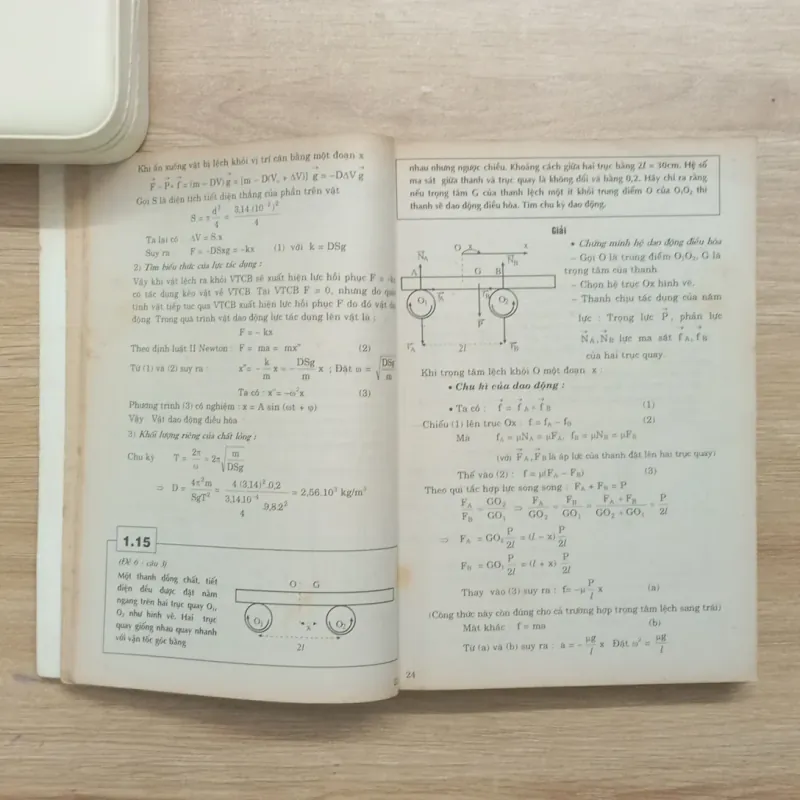 Khi ấn xuống vật bị lệch khỏi vị trí cân bằng một đoạn x
F = P + f = (m - DV) g = [m - D(V₀ + ΔV)] g = -DΔV g
Gọi S là diện tích tiết diện thẳng của phần trên vật
S = π d²/4 = 3,14.(10⁻²)²/4
Ta lại có ΔV = S.x
Suy ra F = -DSxg = -kx (1) với k = DSg
2) Tìm biểu thức của lực tác dụng :
Vậy khi vật lệch ra khỏi VTCB sẽ xuất hiện lực hồi phục F =
có tác dụng kéo vật về VTCB. Tại VTCB F = 0, nhưng do quán
tính vật tiếp tục qua VTCB xuất hiện lực hồi phục F do đó vật dao
động. Trong quá trình vật dao động lực tác dụng lên vật là :
F = - kx
Theo định luật II Newton : F = ma = mx" (2)
Từ (1) và (2) suy ra : x"= - k/m x = - DSg/m x ; Đặt ω = √(DSg/m)
Ta có : x"= -ω²x (3)
Phương trình (3) có nghiệm : x = A sin (ωt + φ)
Vậy Vật dao động điều hòa
3) Khối lượng riêng của chất lỏng :
Chu kỳ T = 2π/ω = 2π√(m/DSg)
⇒ D = 4π²m/SgT² = 4 (3,14)².0,2 / (3,14.10⁻⁴/4 .9,8.2²) = 2,56.10³ kg/m³
1.15
(Đề 6 / câu 3)
Một thanh đồng chất, tiết
diện đều được đặt nằm
ngang trên hai trục quay O₁,
O₂ như hình vẽ. Hai trục
quay giống nhau quay nhanh
với vận tốc góc bằng
O G
O₁ x O₂
2l
nhau nhưng ngược chiều. Khoảng cách giữa hai trục bằng 2l = 30cm. Hệ số
ma sát giữa thanh và trục quay là không đổi và bằng 0,2. Hãy chỉ ra rằng
nếu trọng tâm G của thanh lệch một ít khỏi trung điểm O của O₁O₂ thì
thanh sẽ dao động điều hòa. Tìm chu kỳ dao động.
Giải
O x x
N_A N_B
A G B
O₁ f_A f_B O₂
P
F_A 2l F_B
• Chứng minh hệ dao động điều hòa
- Gọi O là trung điểm O₁O₂, G là
trọng tâm của thanh
- Chọn hệ trục Ox hình vẽ.
- Thanh chịu tác dụng của năm
lực : Trọng lực P, phản lực
N_A, N_B lực ma sát f_A, f_B
của hai trục quay.
Khi trọng tâm lệch khỏi O một đoạn x :
• Chu kì của dao động :
• Ta có : f = f_A + f_B (1)
Chiếu (1) lên trục Ox : f = f_A - f_B (2)
Mà f_A = μN_A = μF_A, f_B = μN_B = μF_B
(với F_A, F_B là áp lực của thanh đặt lên hai trục quay)
Thế vào (2) : f = μ(F_A - F_B) (3)
Theo qui tắc hợp lực song song : F_A + F_B = P
F_A/F_B = GO₂/GO₁ ⇒ F_A/GO₂ = F_B/GO₁ = (F_A + F_B)/(GO₂ + GO₁) = P/2l
⇒ F_A = GO₂ P/2l = (l - x) P/2l
F_B = GO₁ P/2l = (l + x) P/2l
Thay vào (3) suy ra : f = -μ P/l x (a)
(Công thức này còn đúng cho cả trường hợp trọng tâm lệch sang trái)
Mặt khác : f = ma (b)
Từ (a) và (b) suy ra : a = - μg/l x Đặt ω² = μg/l
24